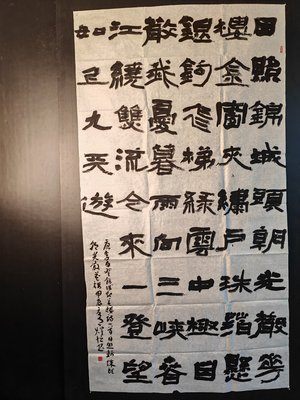 日照錦城頭朝光散花
樓金窗夾繡戶珠箔懸
銀鉤飛梯綠雲中極目
散我憂暮雨向三峽春
江繞雙流今來一登望
如上九天遊